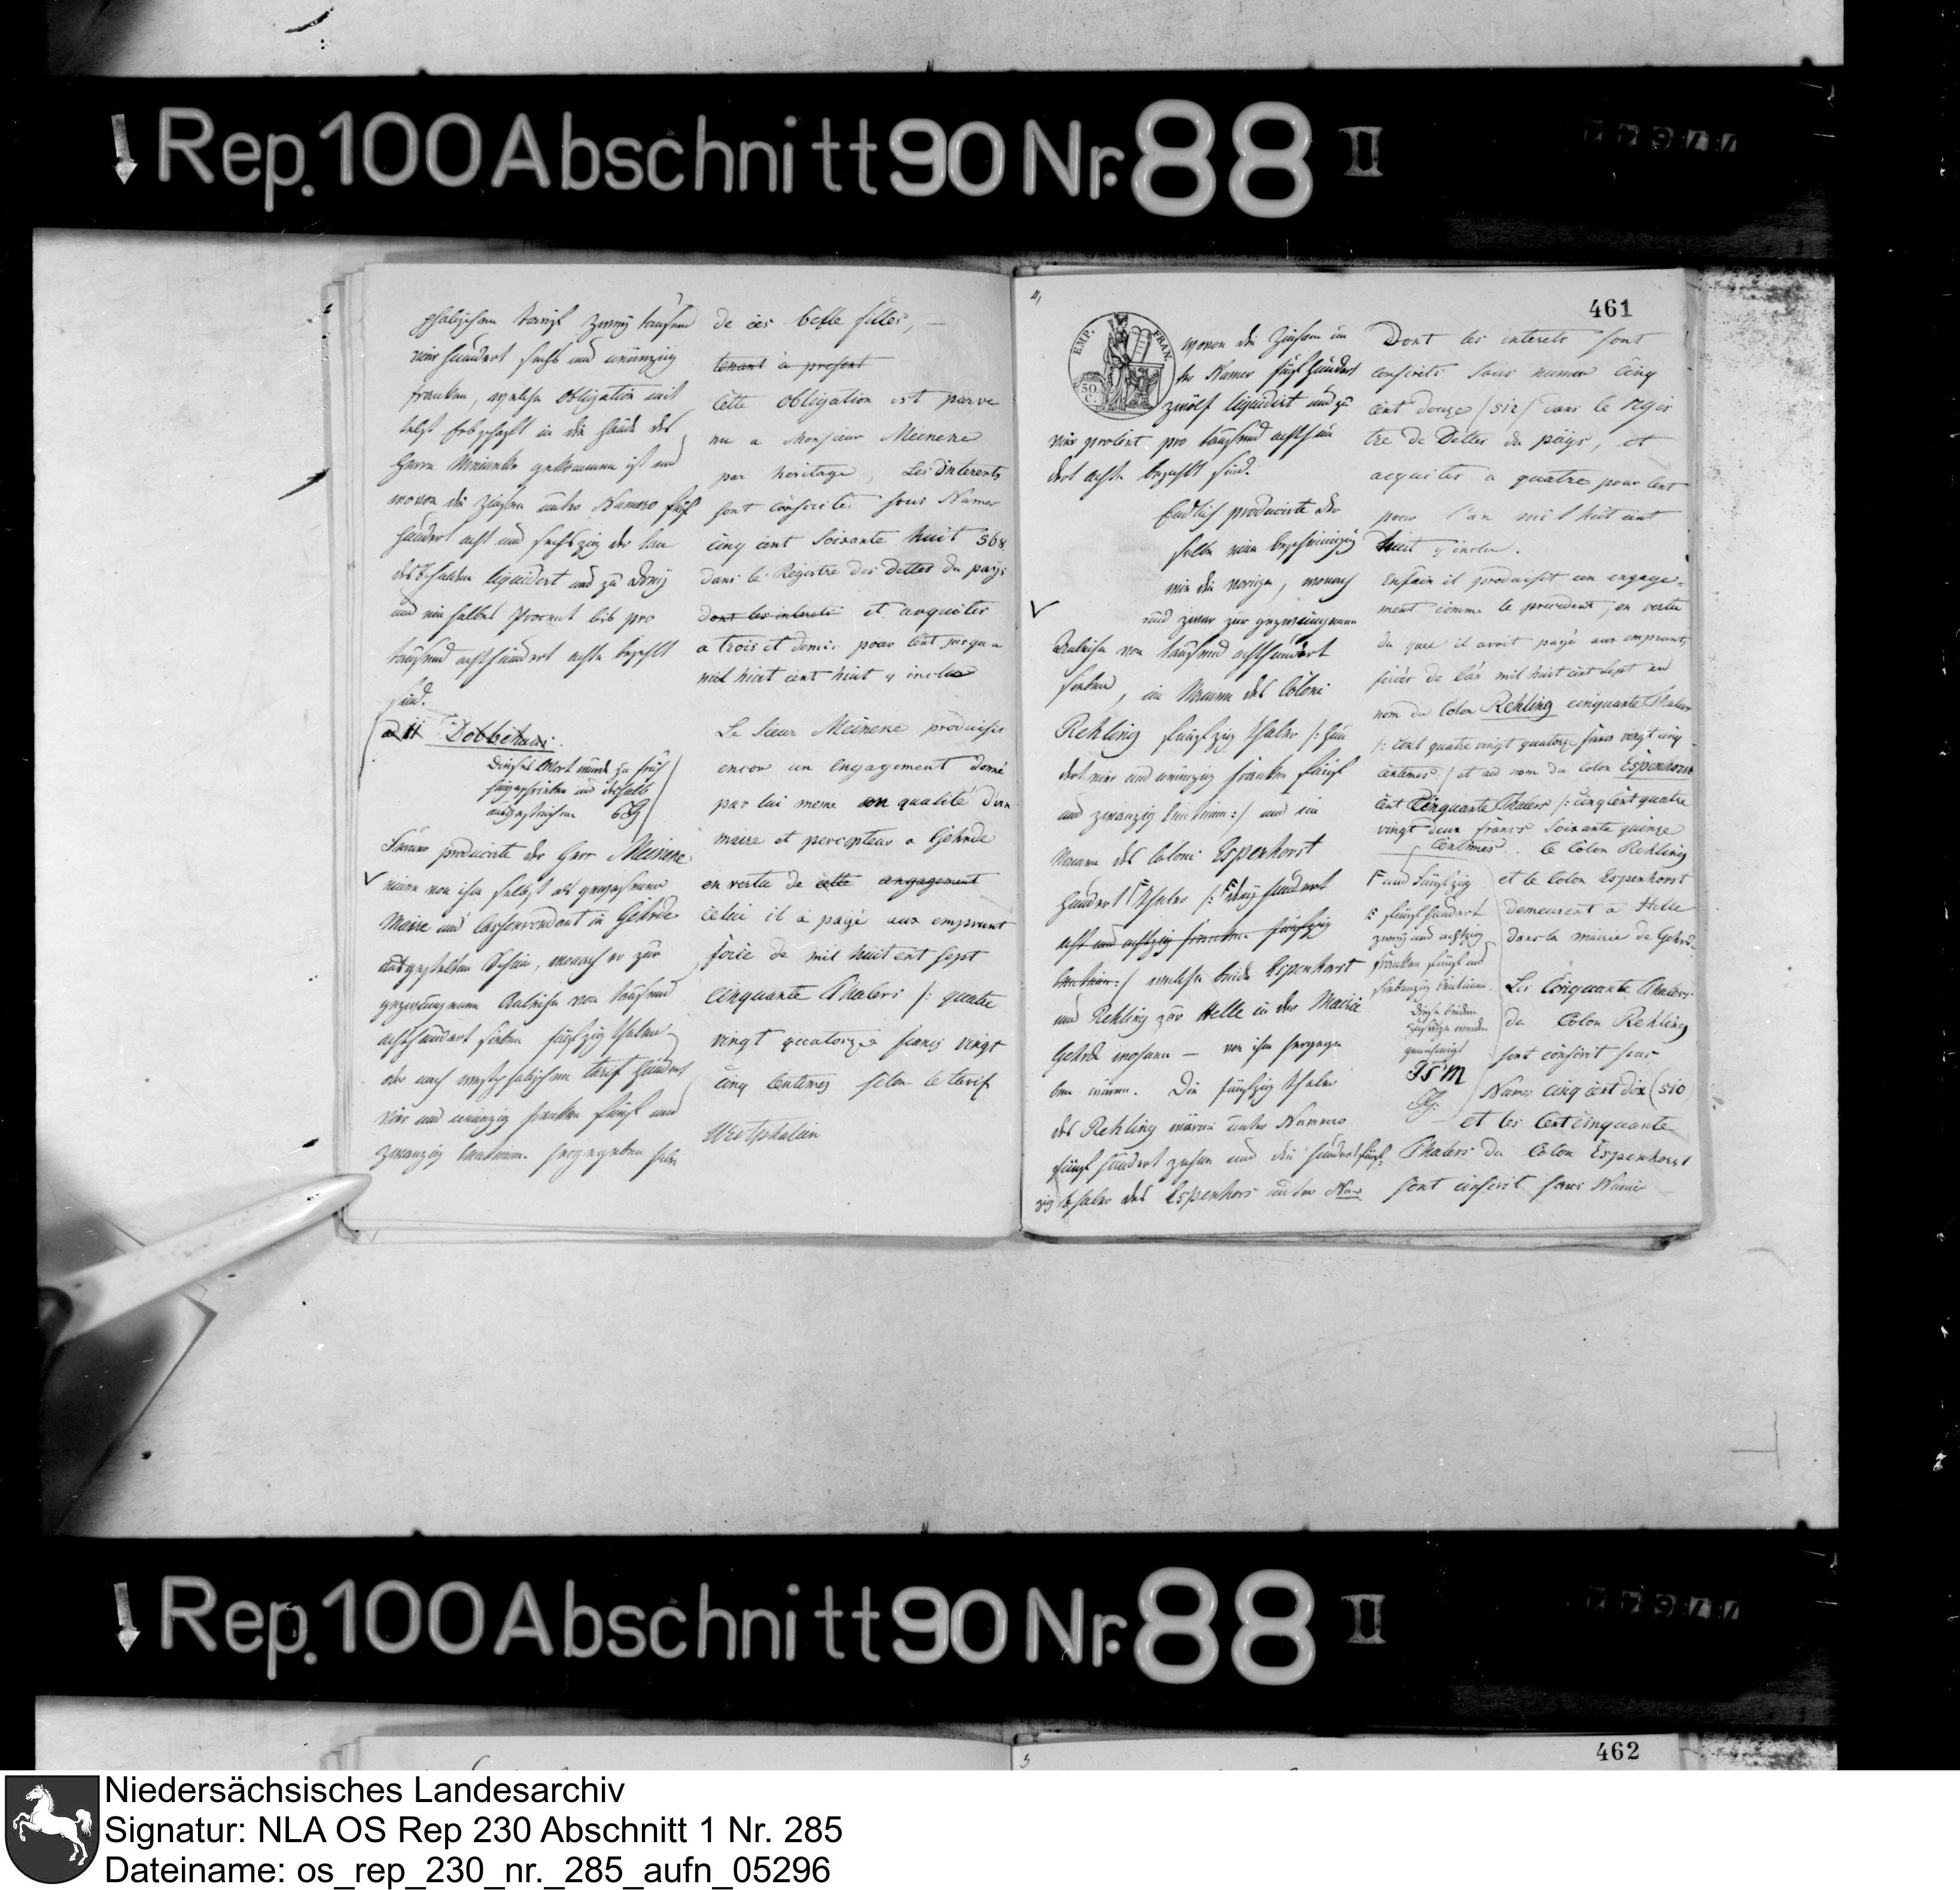 Rep. 100 Abschnitt 90 Nr. 88 II
phalischem Tarif zwey tausend
vier hundert sechs und neunzig
Franken, welche Obligation mit
telst Erbschaft in die Hände des
Herrn Meineke gekommen ist und
wovon die Zinsen unter Numero fünf
hundert acht und sechszig der Lan
desschulden liquidirt und zu drey
und ein halbes Procent bis pro
tausend achthundert acht bezahlt
sind.
ad 11 Dobbehaus.
Dieses Wort wurde zu früh
hingeschrieben und deshalb
ausgestrichen
Ferner producirte der Herr Meineke
einen von ihm selbst als gewesener
Maire und in Gehrde
ausgestellten Schein, wonach er zur
gezwungenen Anleihe von tausend
achthundert sieben fünfzig Thaler
oder nach westphalischem Tarif hundert
vier und neunzig Franken fünf und
zwanzig Centimen hergegeben habe
de ces belle filles,
tenant a present
Cette Obligation est parve
nu a Monsieur Meineke
par heritage, Les interents
sont conscrites sous Numer
cinq cent Soixante huit 568.
dans le Registre des Dettes du pays
dont les interets et acquites
a trois et demie pour Cent jusqu a
mil huit cent huit y inclus
Le Sieur Meineke produisit
encor un Engagement donné
par lui meme en qualité d'un
maire et percepteur a Gehrde
en vertu de cette angagement
celui il a payé aux emprunt
forcé de mil huit cent sept
cinquante Thalers /: quatre
vingt quatorze francs vingt
cinq Centimes selon le tarif
Westphalien
4,
461
EMP. FRAN.
50 C.
wovon die Zinsen un
ter Numer fünf hundert
zwölf liquidirt und zu
vier procent pro tausend achthun
dert acht bezahlt sind.
Endlich producirte der
selbe eine Bescheinigung
wie die vorige, wonach
und zwar zur gezwungenen
Anleihe von tausend achthundert
sieben, im Namen des Coloni
Rehling fünfzig Thaler /: hun
dert vier und neunzig Franken fünf
und zwanzig Centimen :/ und im
Namen des Coloni Espenhorst
hundert F Thaler /: F zwey hundert
acht und achtzig Franken fünfzig
Centimen :/ welche beide Espenhorst
und Rehling zur Helle in der Mairie
Gehrde wohnen — von ihm hergege
ben wären. Die fünfzig Thaler
des Rehling wären unter Numero
fünf hundert zehen und die hundert fünf
zig Thaler des Espenhors unter Nu
Dont les interets sont
conscrits sous numer cinq
cent douze / 512 / dans le regis
tre de Dettes du pays, et
acquites a quatre pour Cent
pour l'an mil huit cent
huit y inclu.
Enfain il produisit un engage-
ment comme le precedent, en vertu
du quel il avoit payé aux emprunts
forcés de l'an mil huit cent sept au
nom du Colon Rehling cinquante Thalers
/: Cent quatre vingt quatorze francs vingt cinq
centimes :/ et au nom du Colon Espenhorst
Cent Cinquante Thalers /: cinq Cent quatre
vingt deux francs Soixante quinze
Centimes. le Colon Rehling
et le Colon Espenhorst
demeurent a Helle
dans la mairie de Gehrde.
Les Cinquante Thalers
du Colon Rehling
sont conscrit sous
Numer cinq cent dix (510)
et les Cent cinquante
Thalers du Colon Espenhorst
sont conscrit sous Numer
F und fünfzig
F fünf hundert
zwey und achtzig
Franken fünf und
siebenzig Centimen.
Diese beiden
Zusätze werden
genehmigt
Rep. 100 Abschnitt 90 Nr. 88 II
5
462
Niedersächsisches Landesarchiv
Signatur: NLA OS Rep 230 Abschnitt 1 Nr. 285
Dateiname: os_rep_230_nr._285_aufn_05296